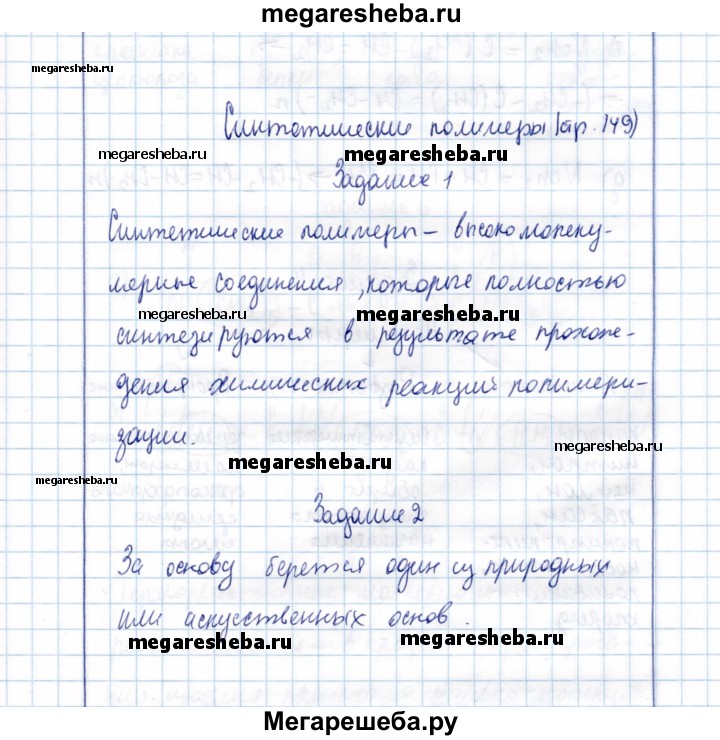 megaresheba.ru
megaresheba.ru
Синтетические полимеры (стр. 149)
megaresheba.ru megaresheba.ru
Задание 1
Синтетические полимеры – высокомолеку-
лярные соединения, которые полностью
megaresheba.ru megaresheba.ru
синтезируются в результате прохож-
дения химических реакций полимери-
зации.
megaresheba.ru
megaresheba.ru
megaresheba.ru
Задание 2
За основу берется один из природных
или искусственных основ.
megaresheba.ru megaresheba.ru
Мегарешеба.ру